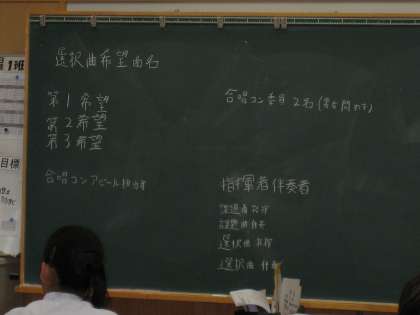 1班
目標
選択曲希望曲名
第1希望
第2希望
第3希望
合唱コンアピール担当者
合唱コン委員 2名(男女問わず)
指揮者伴奏者
課題曲 指揮
課題曲 伴奏
選択曲 指揮
選択曲 伴奏